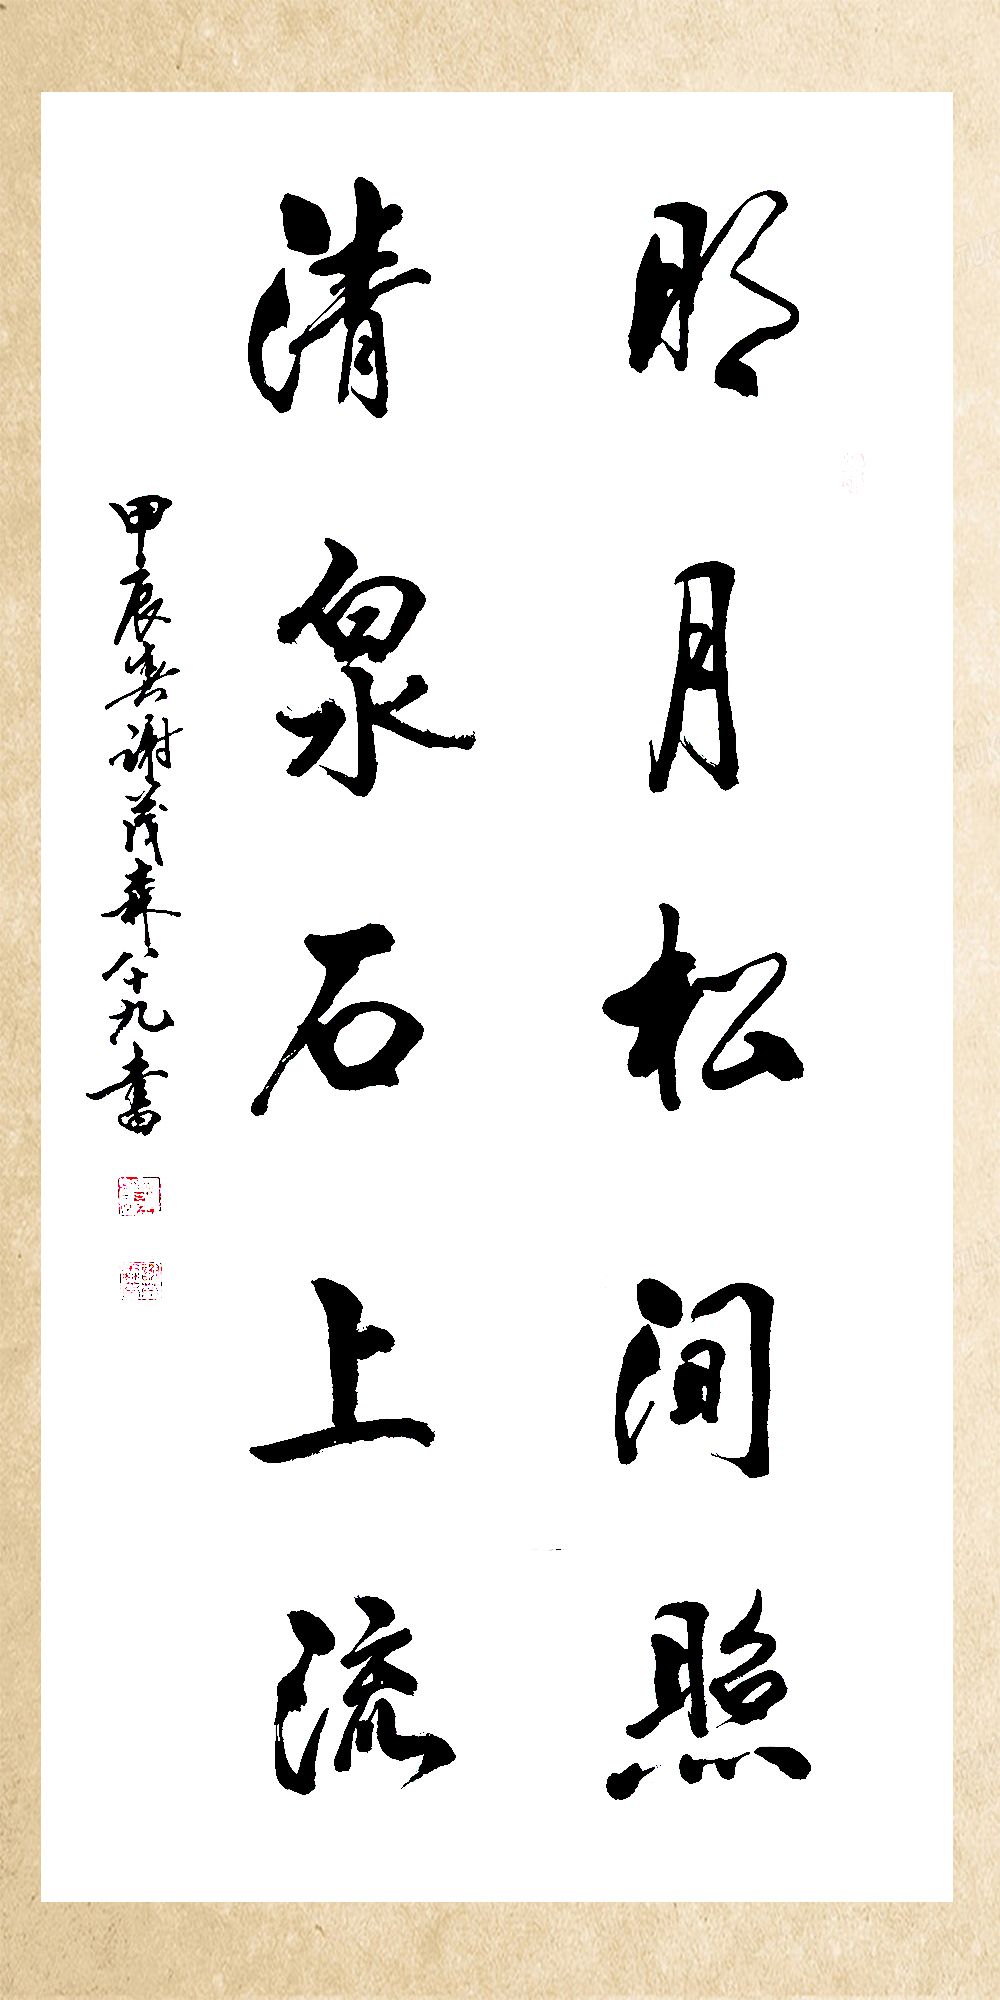 明月松澗照
清泉石上流
甲辰春谢茂森八十九書